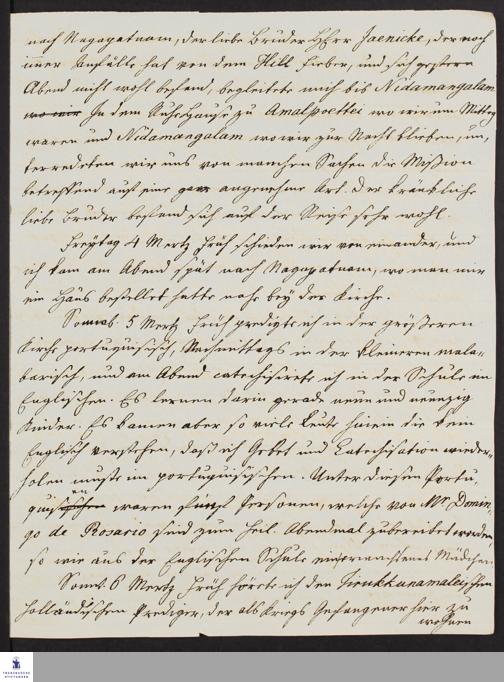 nach Nagapatnam, der liebe Bruder HErr Jaenicke, der noch
immer Anfälle hat von dem Hill Fieber, und sich gestern
Abend nicht wohl befand, begleitete mich bis Nidamangalam
In dem Ruhehause zu Amalpoettei wo wir um Mittag
waren und Nidamangalam wo wir zur Nacht blieben, un,
terredeten wir uns von manchen Sachen die Mission
betreffend auf eine gar angenehme Art. Der kränkliche
liebe Bruder befand sich auf der Reise sehr wohl.
Freytag 4 Mertz früh schieden wir von einander, und
ich kam am Abend spät nach Nagapatnam, wo man mir
ein Haus bestellet hatte nahe bey der Kirche.
Sonnab. 5 Mertz früh predigte ich in der größeren
Kirche portugiesisch, Nachmittags in der kleineren mala-
barisch, und am Abend catechisirte ich in der Schule im
Englischen. Es lernen darin gerade neun und neunzig
Kinder. Es kamen aber so viele Leute hinein die kein
Englisch verstehen, daß ich Gebet und Catechisation wieder-
holen mußte im portugiesischen. Unter diesen Portu,
giesen waren fünf Personen, welche von Mr. Domin-
go de Rosario sind zum heil. Abendmal zubereitet worden,
so wie aus der Englischen Schule ein erwachsenes Mädchen
Sonnt. 6 Mertz früh hörte ich den Tirukkunamaleischen
holländischen Prediger, der als Kriegs Gefangener hier zu
wohnen
FRANCKESCHE
STIFTUNGEN